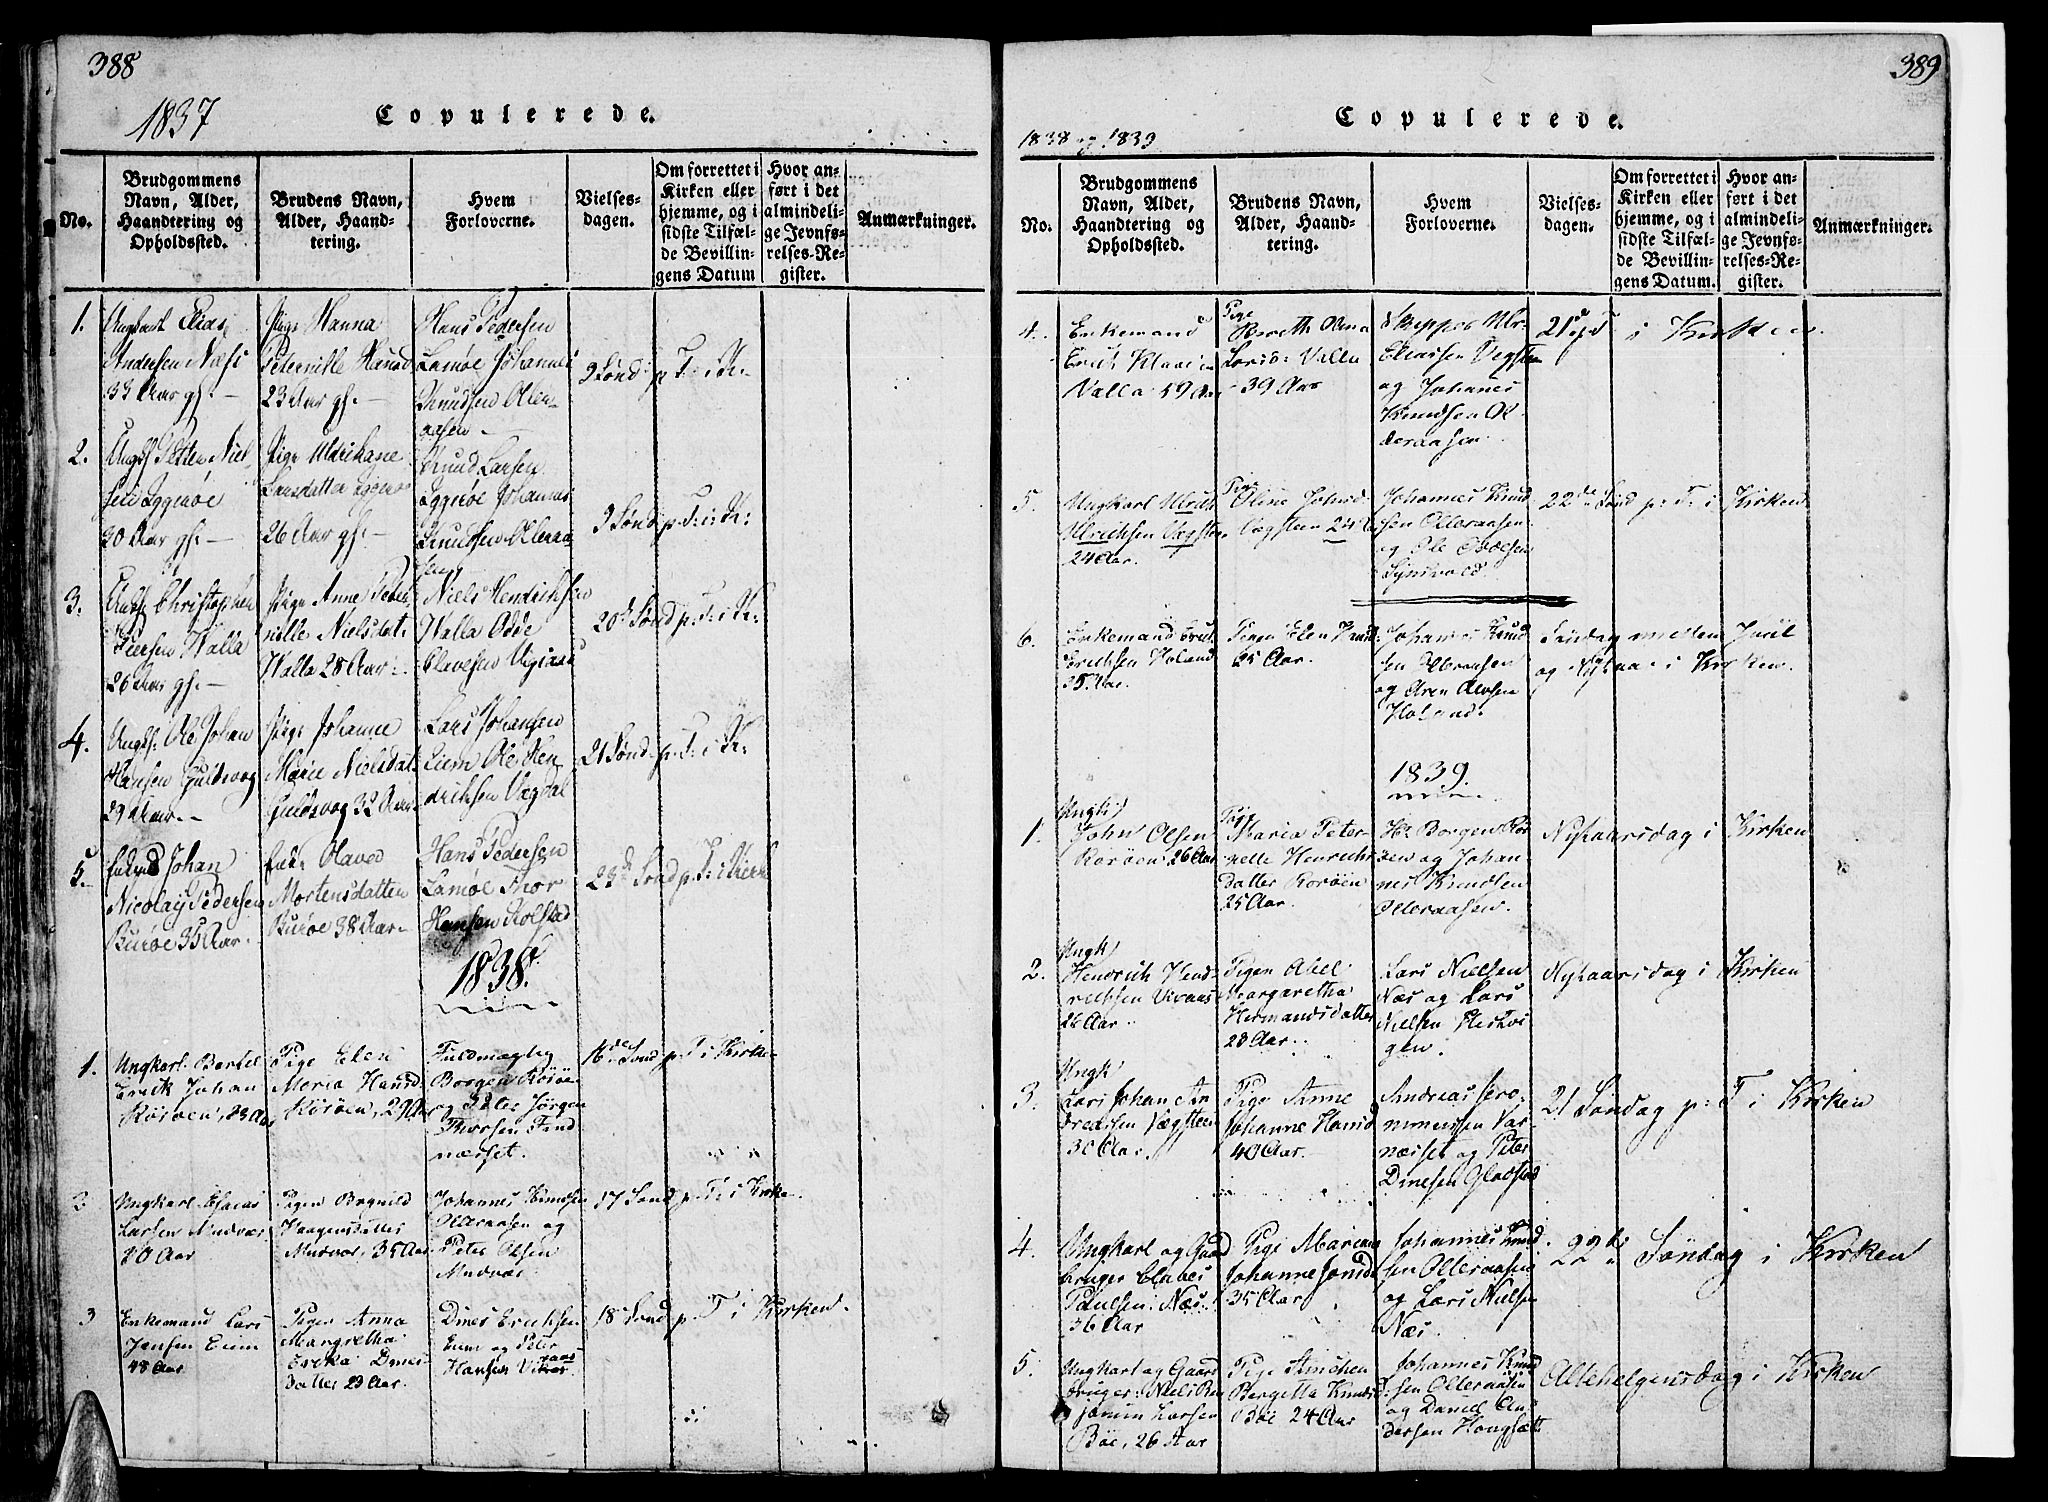 388
1837
Copulerede.
No.
Brudgommens
Navn, Alder,
Haandtering og
Opholdssted.
Brudens Navn,
Alder, Haand-
tering.
Hvem
Forloverne.
Vielses-
dagen.
Om forrettet i
Kirken eller
hjemme, og i
sidste Tilfæl-
de Bevillin-
gens Datum
Hvor an-
ført i det
almindeli-
ge Jevnfø-
relses-Re-
gister.
Anmærkninger.
1.
Ungkarl Elias
Andersen Næss
33 Aar gl. –
Pige Hanna
Peternille Hansd
23 Aar gl. –
Hans Pedersen
Lamøe Johannes
Knudsen Olleraasen –
9 Sønd: p. T: i K:
2.
Ungk Petter Niel-
sen Eggenøe
Pige Uldrikane
Larsdatter Eggenøe
26 Aar gl. –
Knud Larsen
Eggenøe Johannes
Knudsen Olleraa-
sen
9 Sønd p. T: i K:
3.
Ungk Christopher
Walla
26 Aar gl. –
Pige Anne Peter
nille Nielsdat:
Walla 28 Aar –
Niels Hendriksen
Walla Odde
Clavesen
20de Sønd p. T: i K:
4.
Ungk: Ole Johan
Hansen Guldsvog
29 Aar. –
Pige Johanne
Marie Nielsdat
Guldsvog 32 Aar
Lars Johansen
Eiem Ole Hen
driksen Vægdal
21 Sønd. p. T: i K:
5.
Enkemd Johan
Nicolay Pedersen
Burøe 35 Aar.
Enke Olava
Mortensdatter
Burøe 38 Aar –
Hans Pedersen
Lamøe Thor
Hansen Kolstad
23de Sønd p. T: i Kirke
1838.
1.
Ungkarl Bertel
Erik Johan
Rørøen, 23 Aar
Pige Elen
Maria Hansd
Rørøen, 29 Aar
Fuldmægtig
Borgen Rørøe
og Peter Jørgen
Thorsen Tind
næsset.
16de Sønd p. T i Kirke
2
Ungkarl Esaias
Larsen Mudvær
30 Aar
Pigen Bognild
Haagensdatter
Mudvær, 35 Aar
Johannes Knudsen
Olleraasen og
Peter Olsen
Mudvær
17 Sønd p. T: i Kirke
3
Enkemand Lars
Jensen Eiem
48 Aar
Pigen Anna
Margretha
Ereka Dines
datter 23 Aar.
Dines Eriksen
Eiem og Peter
Hansen Vikaas
18 Sønd p. T i Kirken.
389
1838 og 1839
Copulerede.
No.
Brudgommens
Navn, Alder,
Haandtering og
Opholdssted.
Brudens Navn,
Alder, Haand-
tering.
Hvem
Forloverne.
Vielses-
dagen.
Om forrettet i
Kirken eller
hjemme, og i
sidste Tilfæl-
de Bevillin-
gens Datum.
Hvor an-
ført i det
almindeli-
ge Jevnfø-
relses-Re-
gister.
Anmærkninger.
4.
Enkemand
Erik Klausen
Valla 59 Aar
Pige
Bereth Olena
Larsd: Valla
39 Aar
Skipper Ulr-
Eliassen Vegsteen
og Johanes
Knudsen Ol-
deraasen.
21de p T i Kirken.
5.
Ungkarl Ulrich
Ulrichsen Vægsteen
24 Aar.
Pige
Oline Johnsd
Vægsteen 24 Aar
Johannes Knud
sen Olleraasen
og Ole
22de Sønd p: T: i Kirken
6.
Enkemand Erik
Erichsen Holand
35 Aar.
Pigen Elen Knud
25 Aar.
Johannes Knud
sen Olleraasen
og Aren Olevsen
Holand.
Søndag mellem Juul
og Nytaar i Kirken.
1839.
1.
Ungk)
John Olsen
Rørøen 26 Aar
Pige
Maria Peter-
nelle Henrichs
datter Rorøen
25 Aar.
Hr Borgen Rør
øen og Johan-
nes Knudsen
Olleraasen.
Nytaarsdag i Kirken
2.
Ungk)
Hendrich Hend-
richsen Vikaas
26 Aar
Pigen Abel
Margaretha
Hermandsdatter
23 Aar.
Lars Nielsen
Næs og Lars
Nielsen
gen.
Nytaarsdag i Kirken
3.
Ungk)
Lars Johan An
dreassen Vægsteen
30 Aar.
Pige Anne
Johanne Hansd
40 Aar.
Andreas Jero-
nimussen Var
næsset og Peter
Dinesen Gladstad
21 Søndag p: T i Kirken
4.
Ungkarl og Gaard
bruger Claves
Paulsen Næs
36 Aar
Pige Mariana
Johanne Jonsd
35 Aar
Johannes Knud
sen Olleraasen
og Lars Nielsen
Næs.
22de Søndag i Kirken
5.
Ungkarl og Gaard
bruger Niels Ben
jamin Larsen
Böe, 26 Aar
Pige Anchen
Bergetta Knudsd
Böe 24 Aar
Johannes Knud
sen Olleraasen
og Daniel An-
dersen Hongsett
Allehelgensdag i Kirken